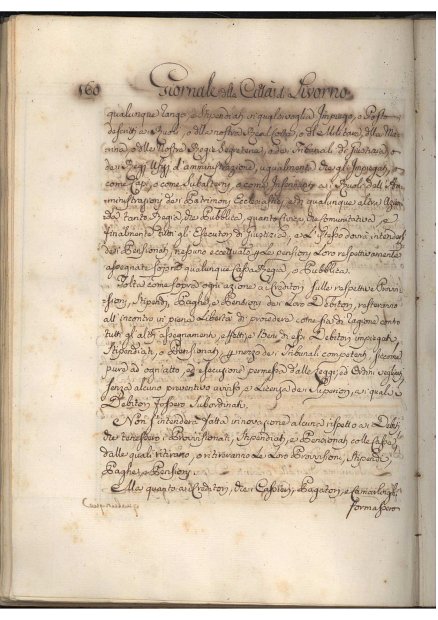 160 Giornale della Città di Livorno
qualunque rango, e Stipendiati in qualsivoglia Impiego, o Posto
descritti a Ruoli, o della nostra Real Corte, o del Militare, della Ma-
rina, o delle nostre Regie Segreterie, o dei Tribunali di Giustizia, o
dei Regj Uffizj d'amministrazione, ugualmente che gl'Impiegati, o
come Capi, o come Subalterni, o come Inservienti ai Ruoli dell'Am-
ministrazioni dei Patrimonj Ecclesiastici, e di qualunque altra Azien-
da tanto Regia, che Pubblica, quanto Civica, che Comunitativa, e
finalmente tutti gl'Esecutori di Giustizia, e lo stesso dovrà intendersi
dei Pensionati, nessuno eccettuato per le pensioni Loro respettivamente
assegnate sopra qualunque Cassa Regia, o Pubblica.
Tolta come sopra ogni azione a Creditori sulle respettive Provvi-
sioni, Stipendj, Paghe, e Pensioni dei Loro Debitori, resteranno
all'incontro in piena Libertà di procedere come sia di ragione contro
tutti gl'altri assegnamenti, effetti, e Beni di essi Debitori impiegati,
Stipendiati, o Pensionati per mezzo dei Tribunali competenti, siccome
pure ad ogni atto, ed esecuzione permessa dalle Leggi, ed Ordini veglianti
senza alcuno preventivo avviso, e Licenza dei Superiori, a i quali i
Debitori fossero Subordinati.
Non s'intenderà fatta innovazione alcuna rispetto ai Debiti,
che tenessero i Provvisionati, Stipendiati, e Pensionati colle Casse
dalle quali ritirano, o ritireranno Le Loro Provvisioni, Stipendj,
Paghe, e Pensioni.
E in quanto ai Creditori, che i Cassieri, Pagatori, e Camarlinghi
formassero